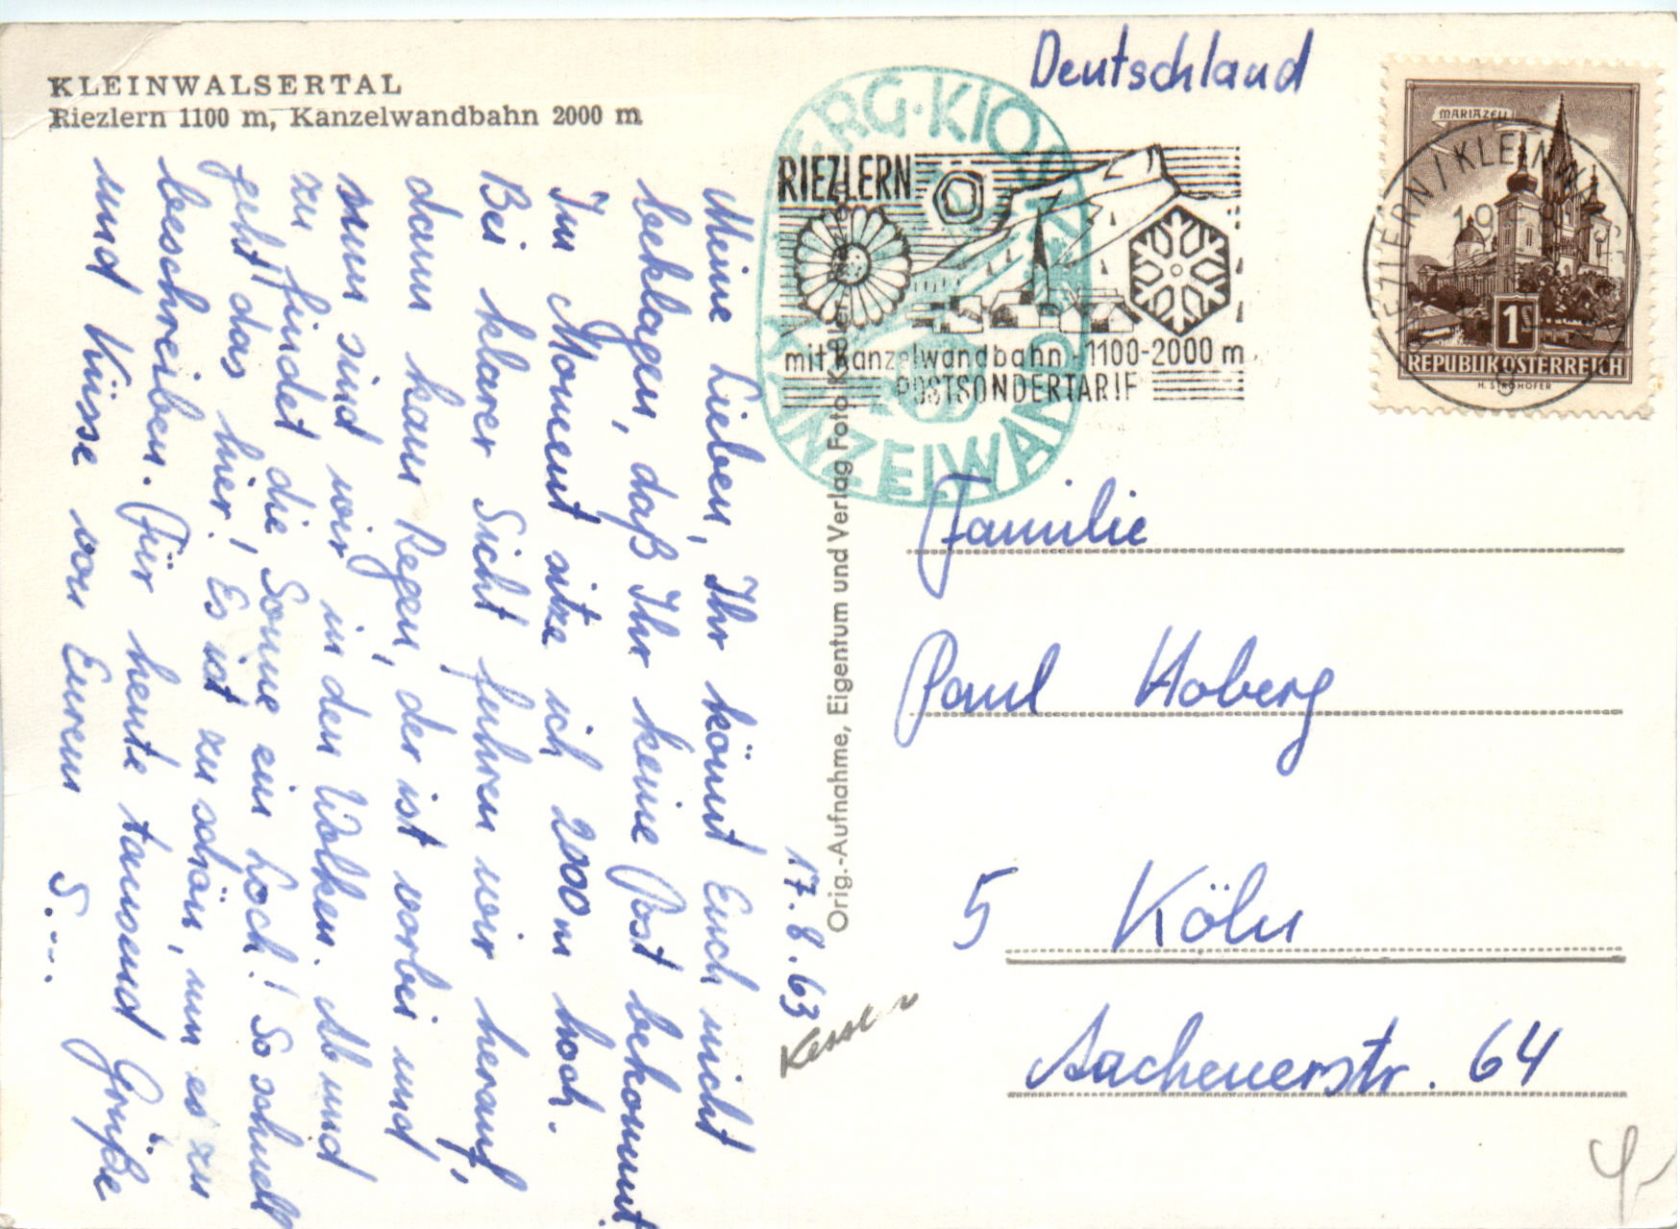 KLEINWALSERTAL
Riezlern 1100 m, Kanzelwandbahn 2000 m
17.8.63
Meine Lieben, Ihr könnt Euch nicht
beklagen, daß Ihr keine Post bekommt.
Im Moment sitze ich 2000 m hoch.
Bei klarer Sicht fuhren wir herauf,
dann kam Regen, der ist vorbei und
nun sind wir in den Wolken. Ab und
zu findet die Sonne ein Loch! So schnell
geht das hier! Es ist zu schön, um es zu
beschreiben. Für heute tausend Grüße
und Küsse von Eurem S....
Orig.-Aufnahme, Eigentum und Verlag Foto
BERG-KIOSK
KANZELWAND
RIEZLERN
mit Kanzelwandbahn 1100-2000 m
POSTSONDERTARIF
Deutschland
MARIAZELL
1S
REPUBLIK ÖSTERREICH
H. STROHOFER
RIEZLERN / KLEINW
Familie
Paul Hoberg
5 Köln
Aachenerstr. 64